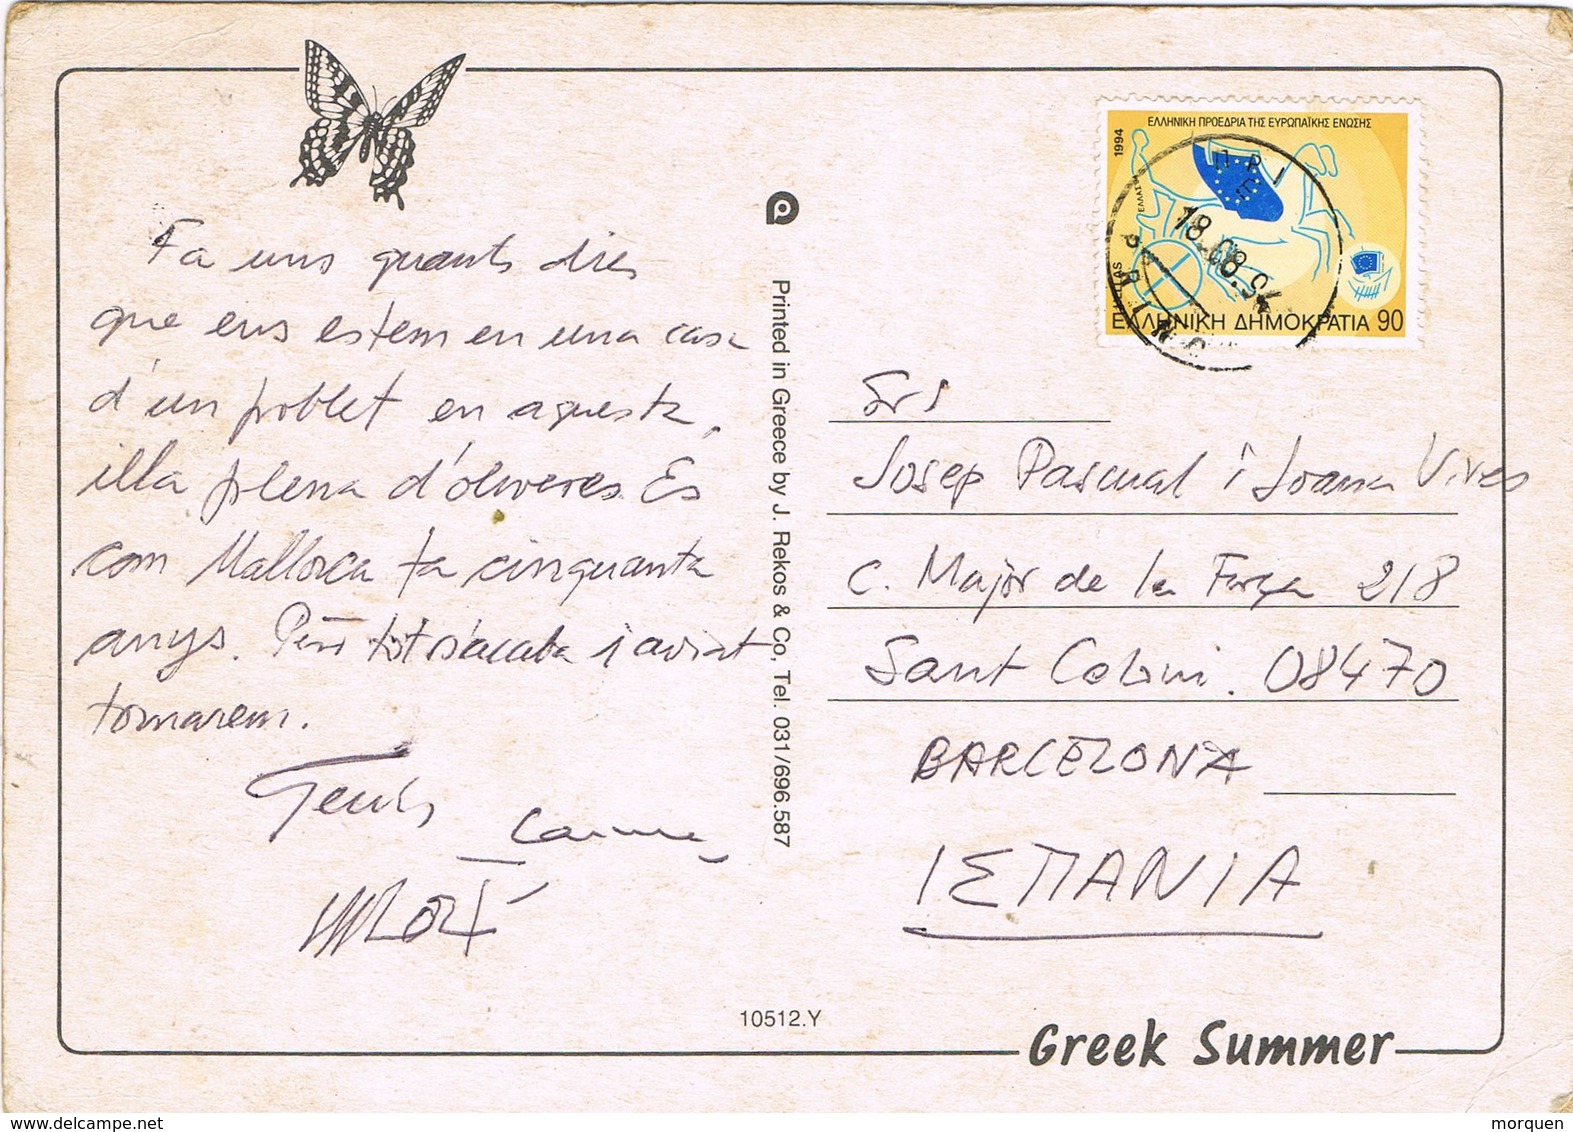 Fa uns quants dies
que ens estem en una casa
d'un poblet en aquesta
illa plena d'oliveres. Es
com Mallorca fa cinquanta
anys. Però tot s'acaba i aviat
tornarem.
Carme
Printed in Greece by J. Rekos & Co, Tel. 031/696.587
10512.Y
ΕΛΛΗΝΙΚΗ ΠΡΟΕΔΡΙΑ ΤΗΣ ΕΥΡΩΠΑΪΚΗΣ ΕΝΩΣΗΣ
1994
ΕΛΛΑΣ
HELLAS
ΕΛΛΗΝΙΚΗ ΔΗΜΟΚΡΑΤΙΑ 90
ΠΡΙ
18.08.94
Srs
Josep Pascual i Joana Vives
C. Major de la Força 218
Sant Celoni. 08470
BARCELONA
ΙΣΠΑΝΙΑ
Greek Summer
morquen